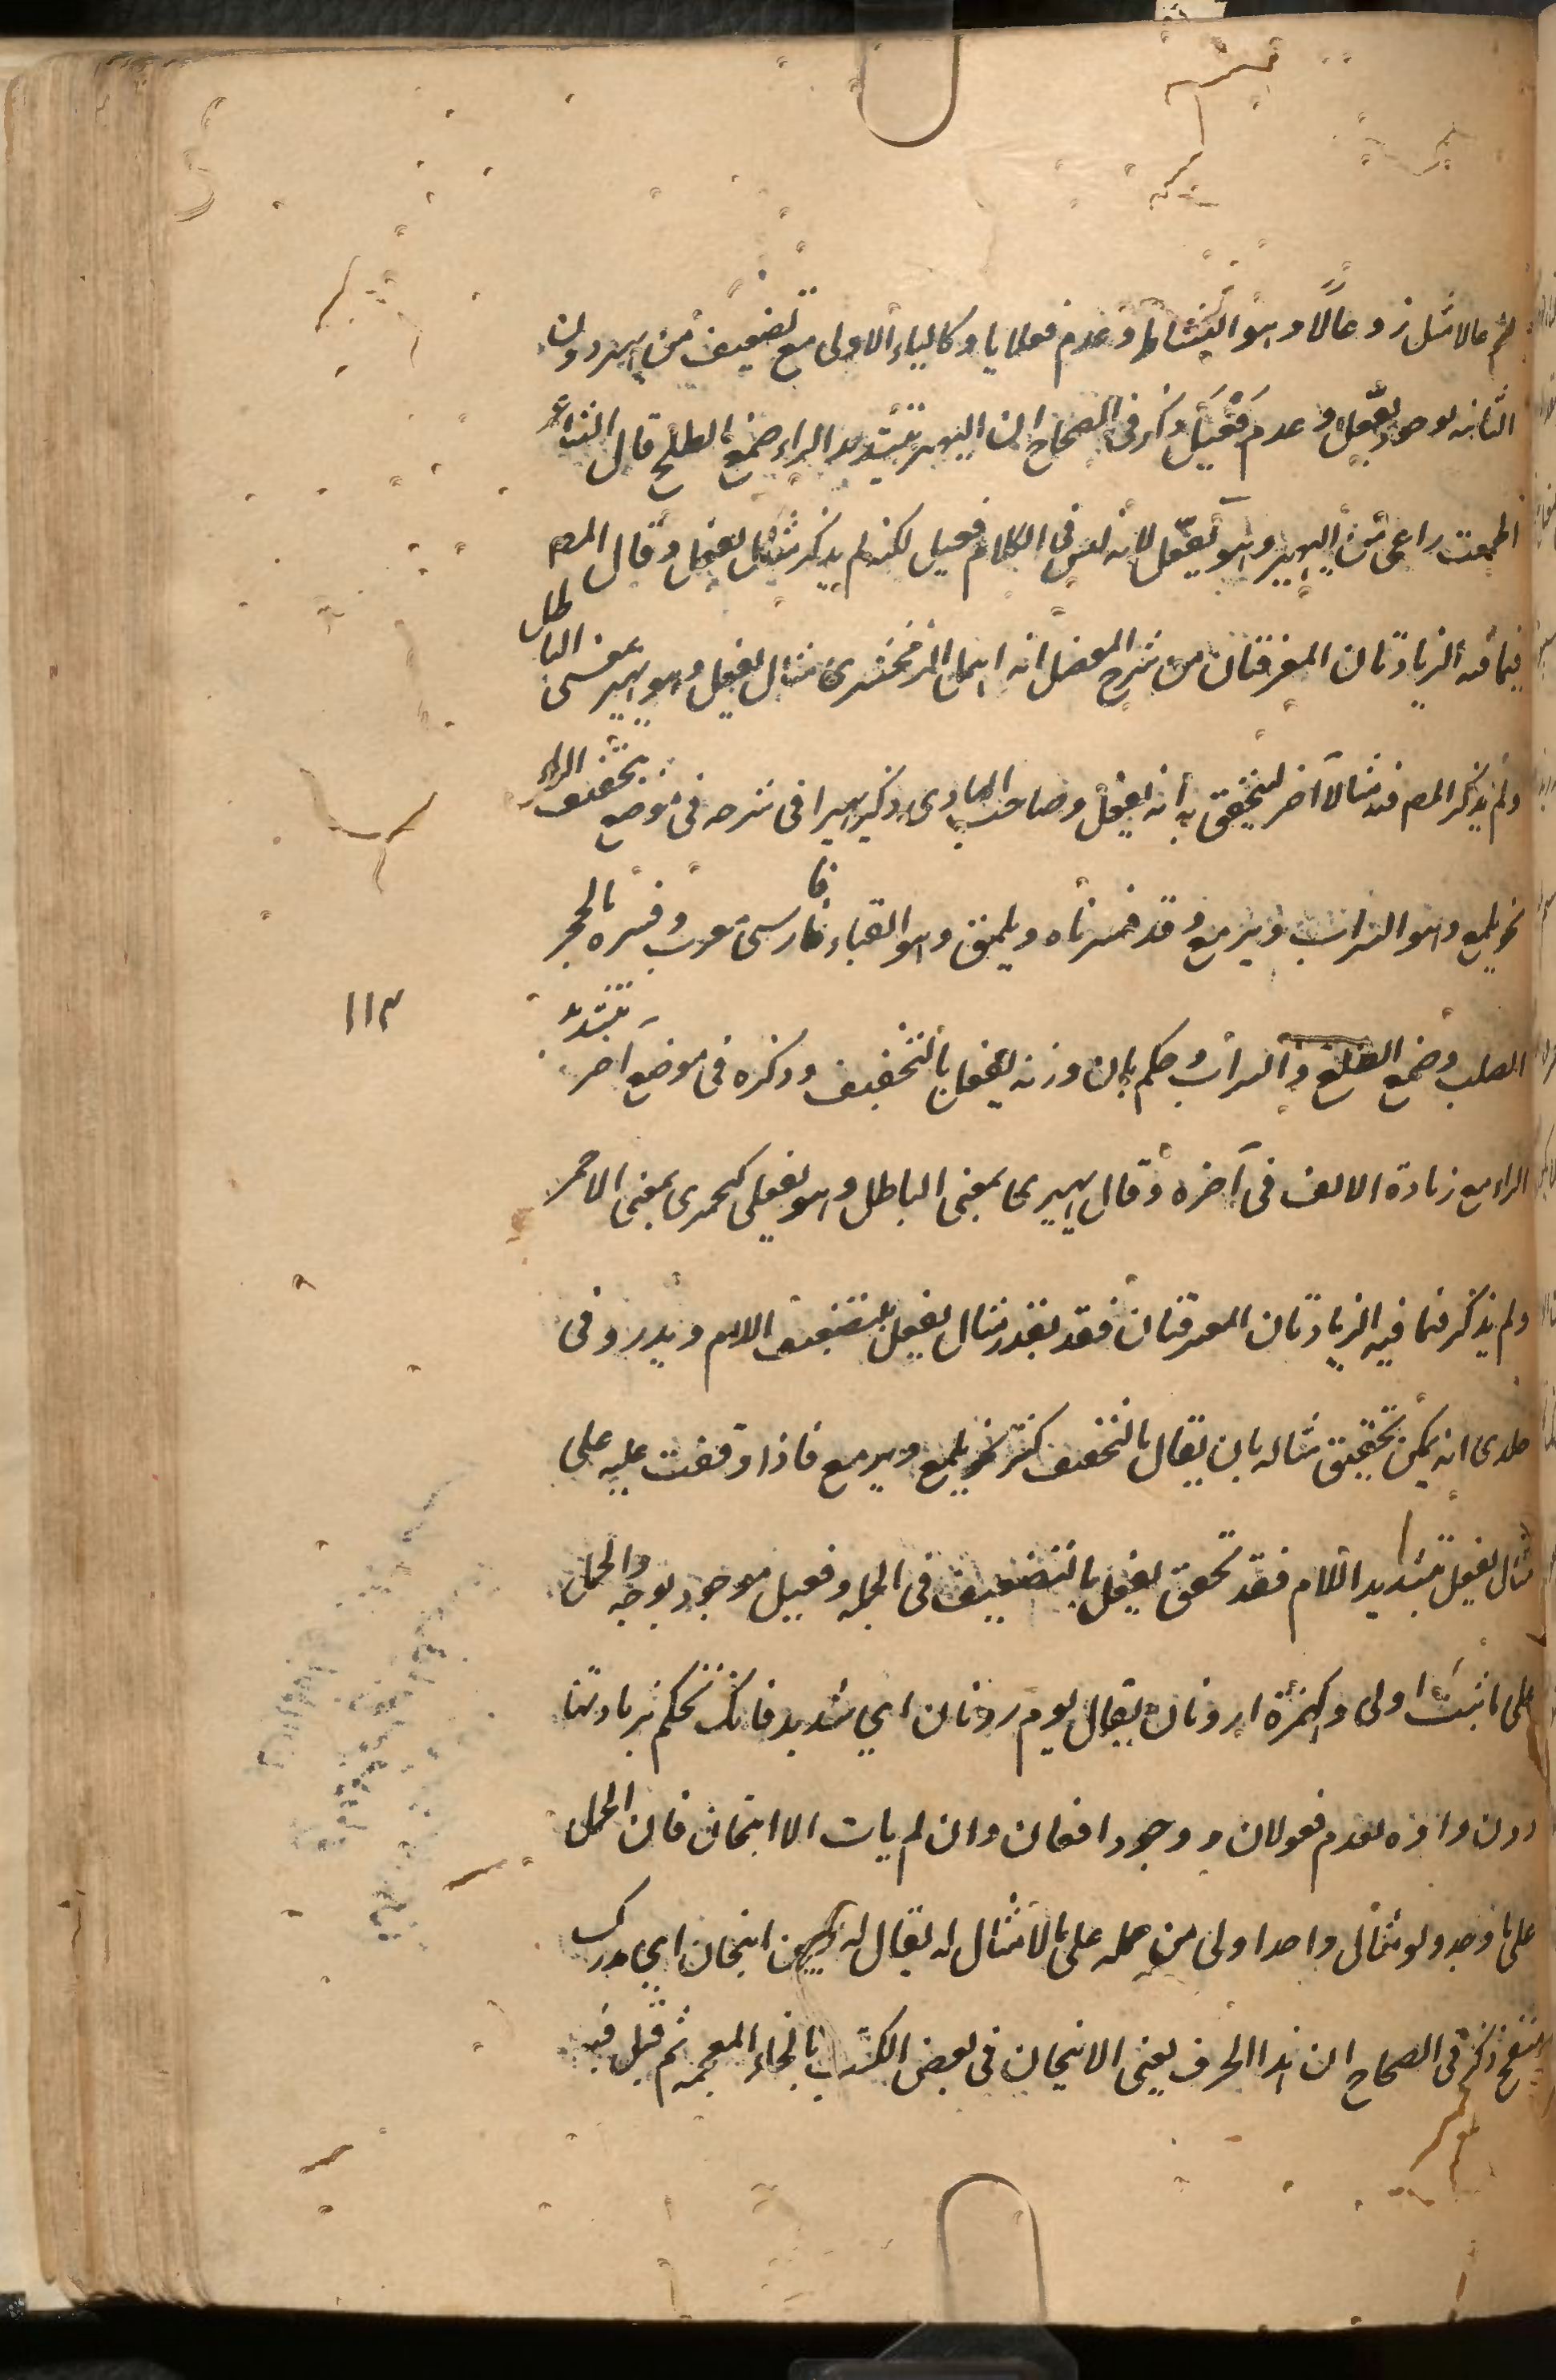 ثم عالا مثل زوعالا وهو النشاط وعدم فعلايا وكالياء الاولى مع تضعيف من يهير دون
الثانيه لوجود يفعل وعدم فعيل ذكر في الصحاح ان اليهير بتشديد الراء صمغ الطلح قال الشاعر
اطعمت راعي من اليهير وهو يفعل لانه ليس في الكلام فعيل لكنه لم يذكر مثال يفعل وقال المص
فيما فيه الزيادتان المفترقتان من شرح المفصل انه اهمل الزمخشري مثال يفعل وهو يهير بمعنى الباطل
ولم يذكر المص فيه مثالا آخر ليتحقق به انه يفعل وصاحب الهادي ذكر يهيرا في شرحه في موضع بتخفيف الراء
نحو يلمع وهو السراب ويرمع وقد فسرناه ويلمق وهو القباء فارسي معرب وفسره بالحجر
الصلب وصمغ الطلح والسراب وحكم بان وزنه يفعل بالتخفيف وذكره في موضع آخر بتشديد
الراء مع زيادة الالف في آخره وقال يهيرى بمعنى الباطل وهو يفعلى كيحمرى بمعنى الاحمر
ولم يذكر فيما فيه الزيادتان المفترقتان فقد بقدر مثال يفعل بتضعيف اللام ويدور في
خلدي انه يمكن تحقيق مثاله بان يقال بالتخفيف كثر نحو يلمع ويرمع فاذا وقفت عليه على
مثال يفعل بتشديد اللام فقد تحقق يفعل بالتضعيف في الجمله وفعيل موجود بوجه والحمل
على ما ثبت اولى وكهمزة ارونان يقال يوم ارونان اي شديد فانك تحكم بزيادتها
دون واوه لعدم فعولان ووجود افعلان وان لم يات الا انبجان فان الحمل
على ما وجد ولو مثال واحد اولى من حمله على ما لا مثال له يقال له عجين انبجان اي مدرك
منتفخ ذكر في الصحاح ان هذا الحرف يعني الانبجان في بعض الكتب بالخاء المعجمه ثم قيل فيه
١١٣